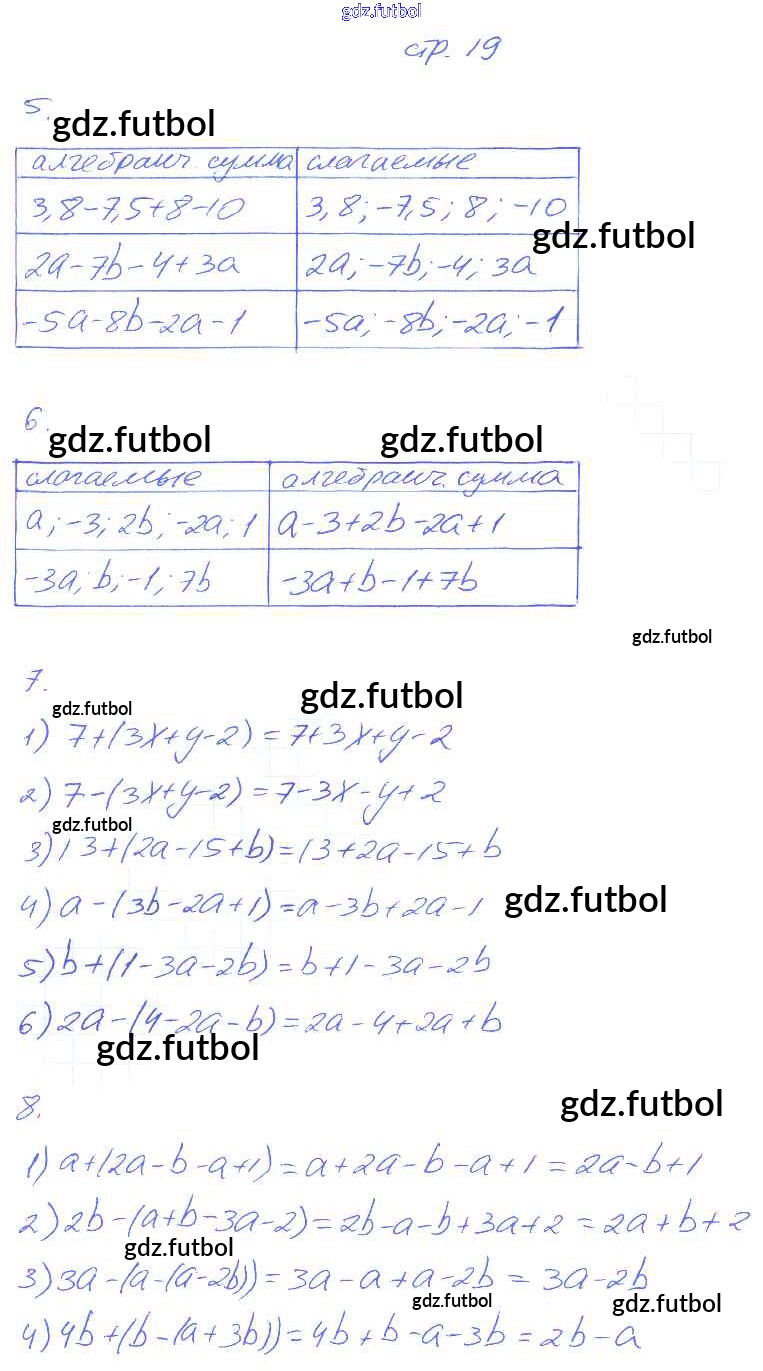 gdz.futbol
стр. 19
5.
gdz.futbol
алгебраич. сумма слагаемые
3,8-7,5+8-10 3,8; -7,5; 8; -10
gdz.futbol
2a-7b-4+3a 2a; -7b; -4; 3a
-5a-8b-2a-1 -5a; -8b; -2a; -1
6.
gdz.futbol gdz.futbol
слагаемые алгебраич. сумма
a; -3; 2b; -2a; 1 a-3+2b-2a+1
-3a; b; -1; 7b -3a+b-1+7b
gdz.futbol
7.
gdz.futbol gdz.futbol
1) 7+(3x+y-2)=7+3x+y-2
2) 7-(3x+y-2)=7-3x-y+2
gdz.futbol
3) 13+(2a-15+b)=13+2a-15+b
4) a-(3b-2a+1)=a-3b+2a-1
gdz.futbol
5) b+(1-3a-2b)=b+1-3a-2b
6) 2a-(4-2a-b)=2a-4+2a+b
gdz.futbol
8.
gdz.futbol
1) a+(2a-b-a+1)=a+2a-b-a+1=2a-b+1
2) 2b-(a+b-3a-2)=2b-a-b+3a+2=2a+b+2
gdz.futbol
3) 3a-(a-(a-2b))=3a-a+a-2b=3a-2b
gdz.futbol gdz.futbol
4) 4b+(b-(a+3b))=4b+b-a-3b=2b-a